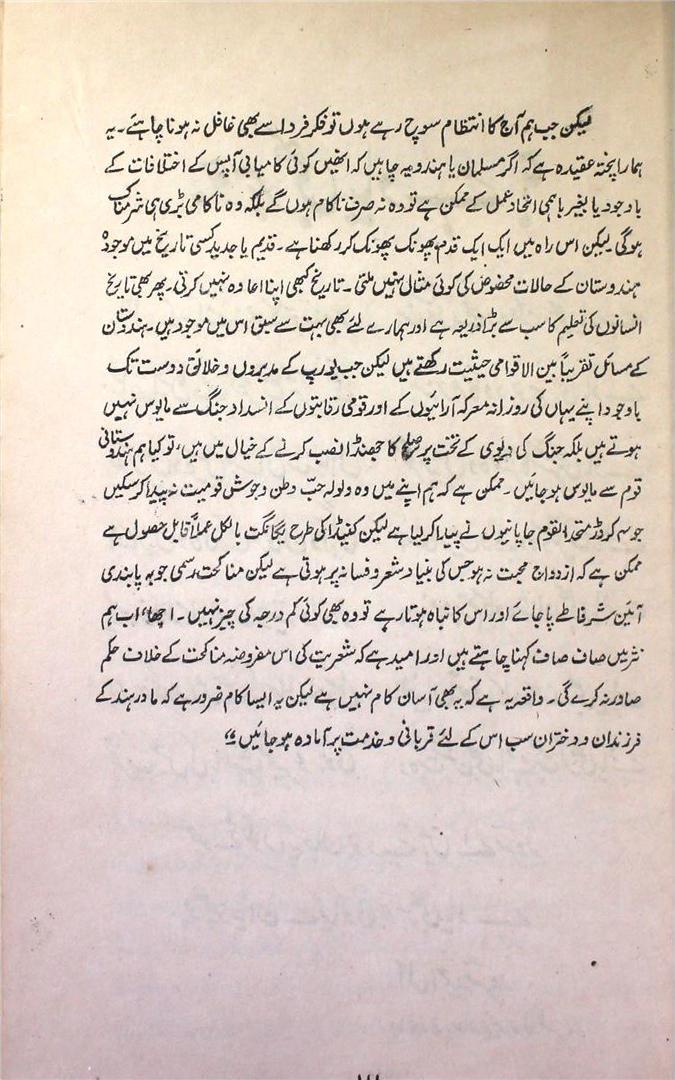 لیکن جب ہم آج کا انتظام سوچ رہے ہوں تو فکر فردا سے بھی غافل نہ ہونا چاہئے۔ یہ
ہمارا پختہ عقیدہ ہے کہ اگر مسلمان یا ہندو یہ چاہیں کہ انھیں کوئی کامیابی آپس کے اختلافات کے
باوجود یا بغیر باہمی اتحاد عمل کے ممکن ہے تو وہ نہ صرف ناکام ہوں گے بلکہ وہ ناکامی بڑی ہی شرمناک
ہوگی لیکن اس راہ میں ایک ایک قدم پھونک پھونک کر رکھنا ہے۔ قدیم یا جدید کسی تاریخ میں موجودہ
ہندوستان کے حالات مخصوص کی کوئی مثال نہیں ملتی۔ تاریخ کبھی اپنا اعادہ نہیں کرتی۔ پھر بھی تاریخ
انسانوں کی تعلیم کا سب سے بڑا ذریعہ ہے اور ہمارے لئے بھی بہت سے سبق اس میں موجود ہیں۔ ہندوستان
کے مسائل تقریباً بین الاقوامی حیثیت رکھتے ہیں لیکن جب یورپ کے مدبروں و خلائق دوست تک
باوجود اپنے یہاں کی روزانہ معرکہ آرائیوں کے اور قومی رقابتوں کے انسداد جنگ سے مایوس نہیں
ہوتے ہیں بلکہ جنگ کی دیوی کے تخت پر صلح کا جھنڈا نصب کرنے کے خیال میں ہیں، تو کیا ہم ہندوستانی
قوم سے مایوس ہو جائیں۔ ممکن ہے کہ ہم اپنے میں وہ ولولہ حبّ وطن و جوش قومیت نہ پیدا کر سکیں
جو ۴ کروڑ متحد القوم جاپانیوں نے پیدا کر لیا ہے لیکن کنیڈا کی طرح یگانگت بالکل عملاً قابل حصول ہے
ممکن ہے کہ ازدواج محبت نہ ہو جس کی بنیاد شعر و فسانہ پر ہوتی ہے لیکن مناکحت رسمی جو بہ پابندی
آئین شرفا طے پا جائے اور اس کا نباہ ہوتا رہے تو وہ بھی کوئی کم درجہ کی چیز نہیں۔ اچھا، اب ہم
نثر میں صاف صاف کہنا چاہتے ہیں اور امید ہے کہ شعریت کی اس مفروضہ مناکحت کے خلاف حکم
صادر نہ کرے گی۔ واقعہ یہ ہے کہ یہ بھی آسان کام نہیں ہے لیکن یہ ایسا کام ضرور ہے کہ مادر ہند کے
فرزندان و دختران سب اس کے لئے قربانی و خدمت پر آمادہ ہو جائیں"